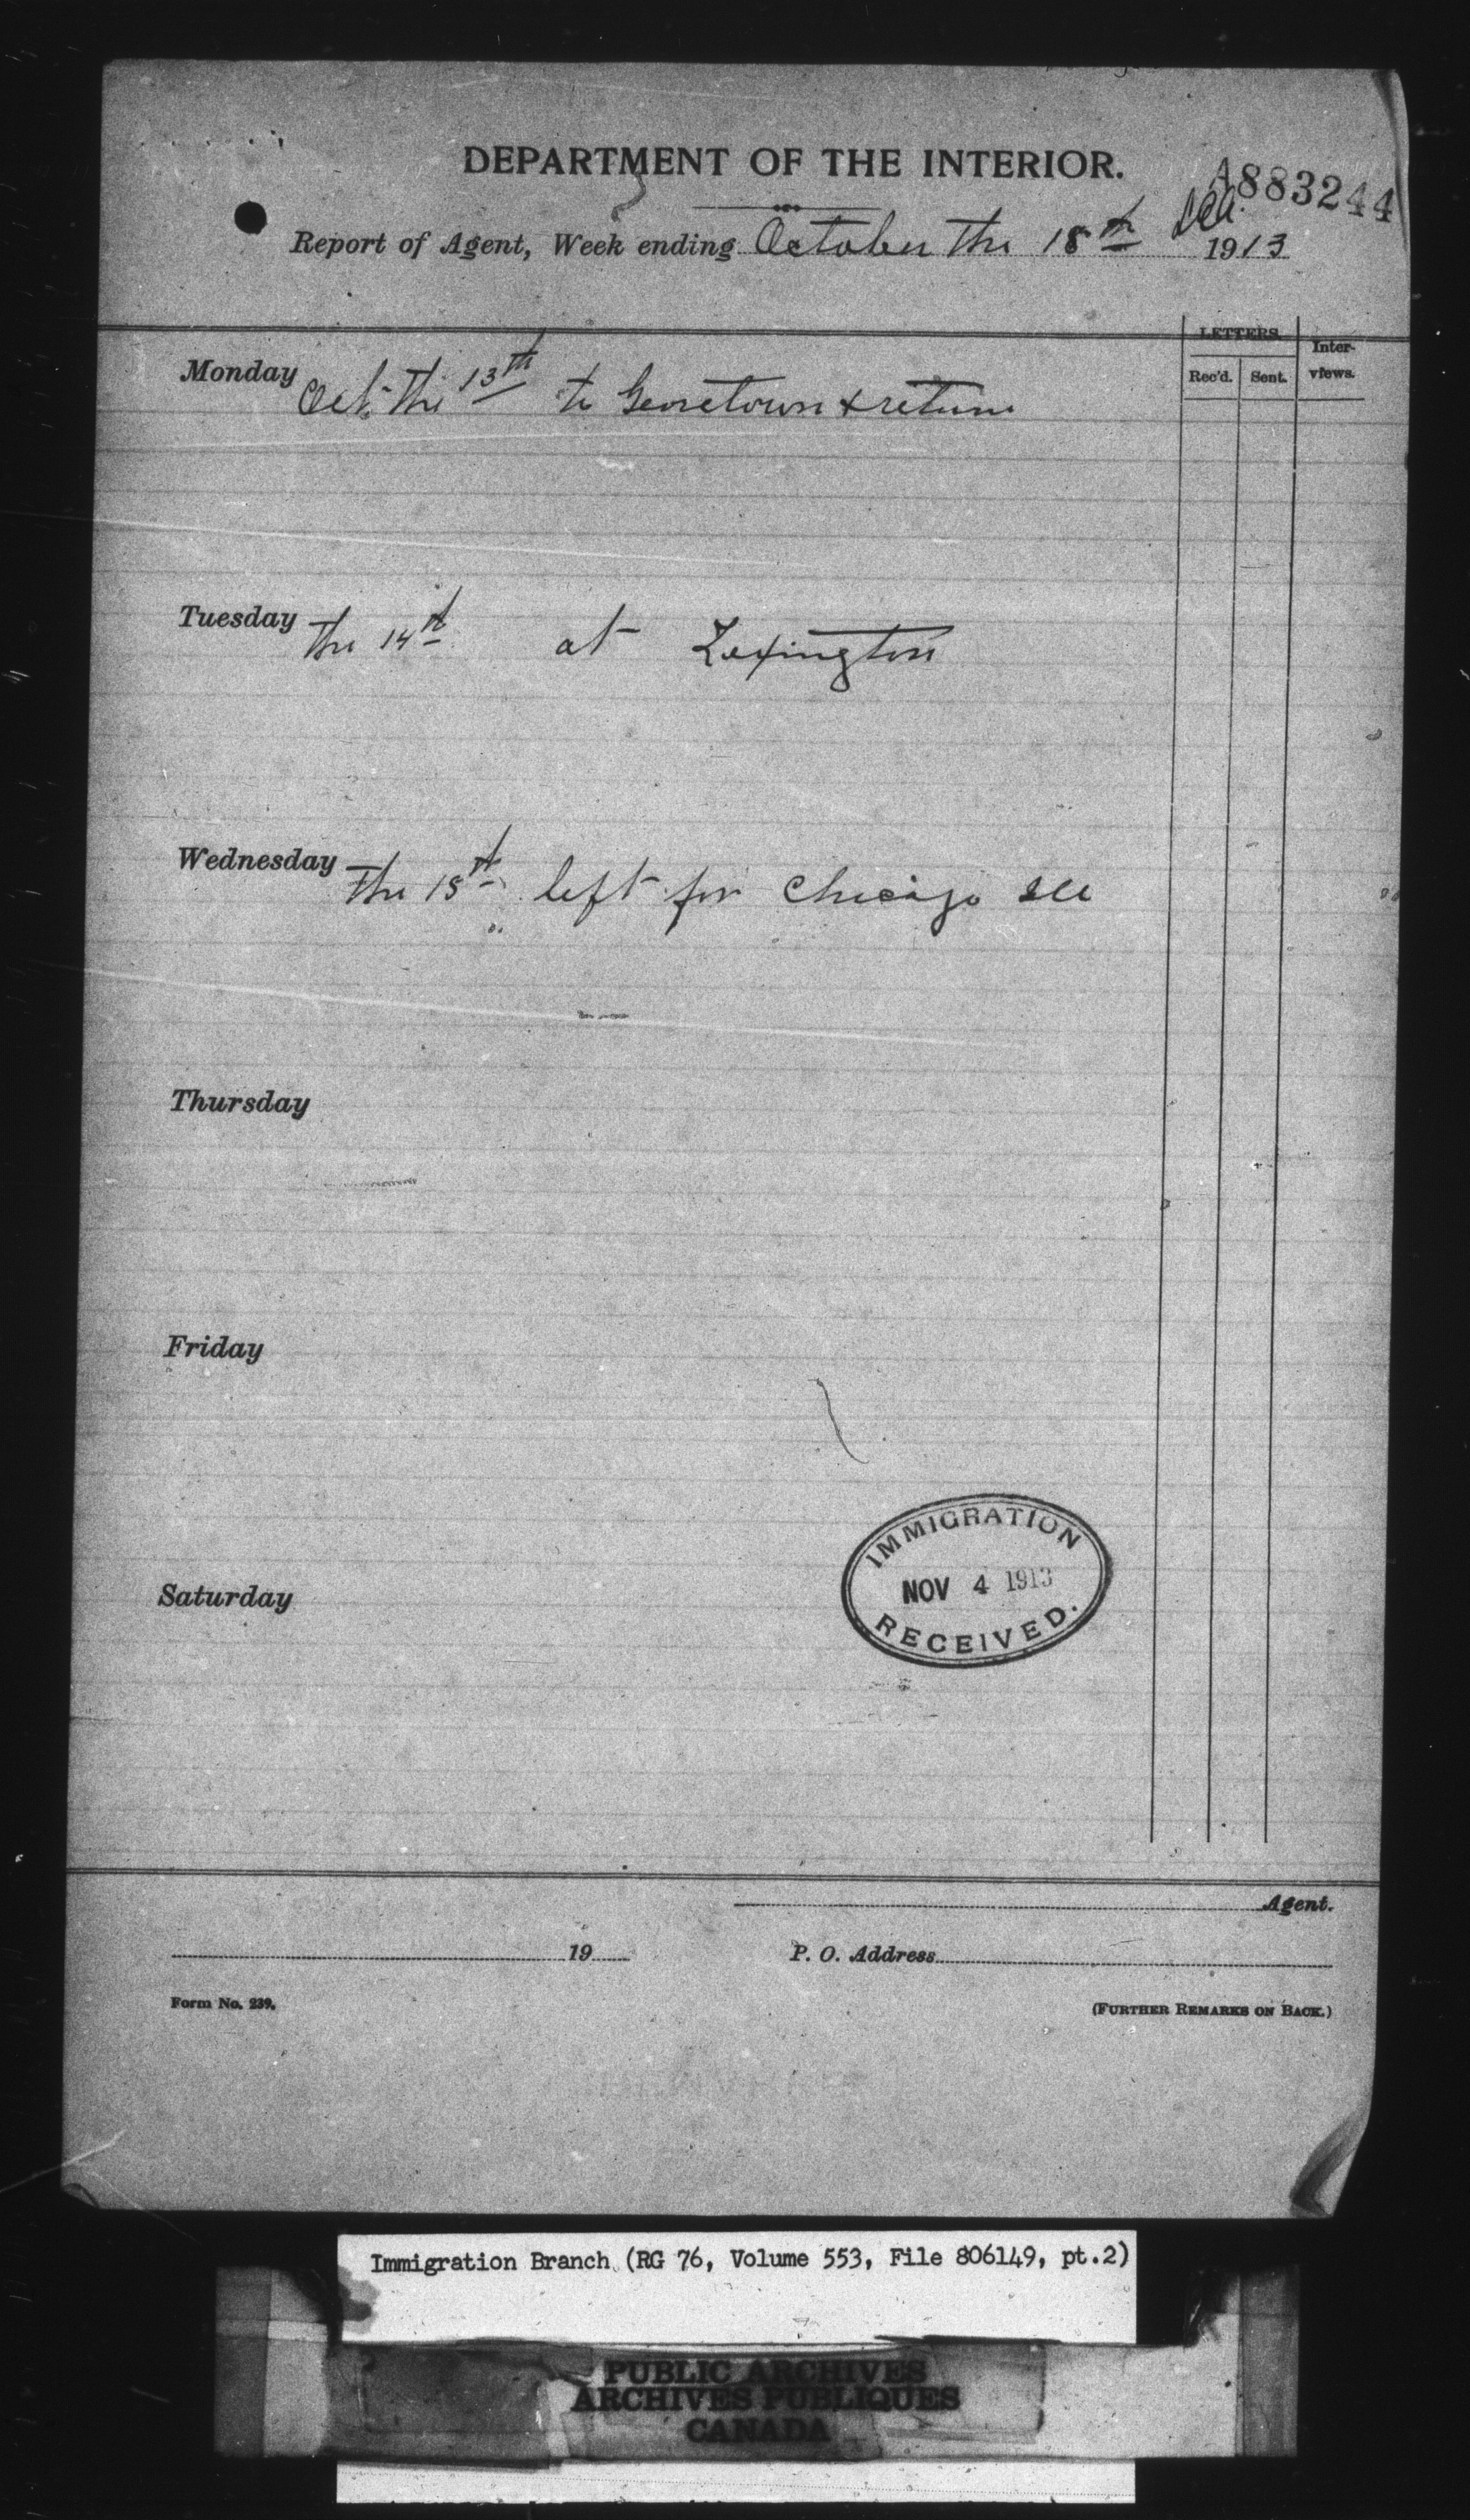 DEPARTMENT OF THE INTERIOR.
A883244
Report of Agent, Week ending October the 18th 1913
LETTERS.
Rec'd. Sent. Inter-views.
Monday Oct. the 13th to Georetown & return
Tuesday the 14th at Lexington
Wednesday the 15th left for Chicago Ill
Thursday
Friday
Saturday
IMMIGRATION
NOV 4 1913
RECEIVED.
Agent.
19
P. O. Address
Form No. 239.
(FURTHER REMARKS ON BACK.)
Immigration Branch (RG 76, Volume 553, File 806149, pt.2)
PUBLIC ARCHIVES
ARCHIVES PUBLIQUES
CANADA